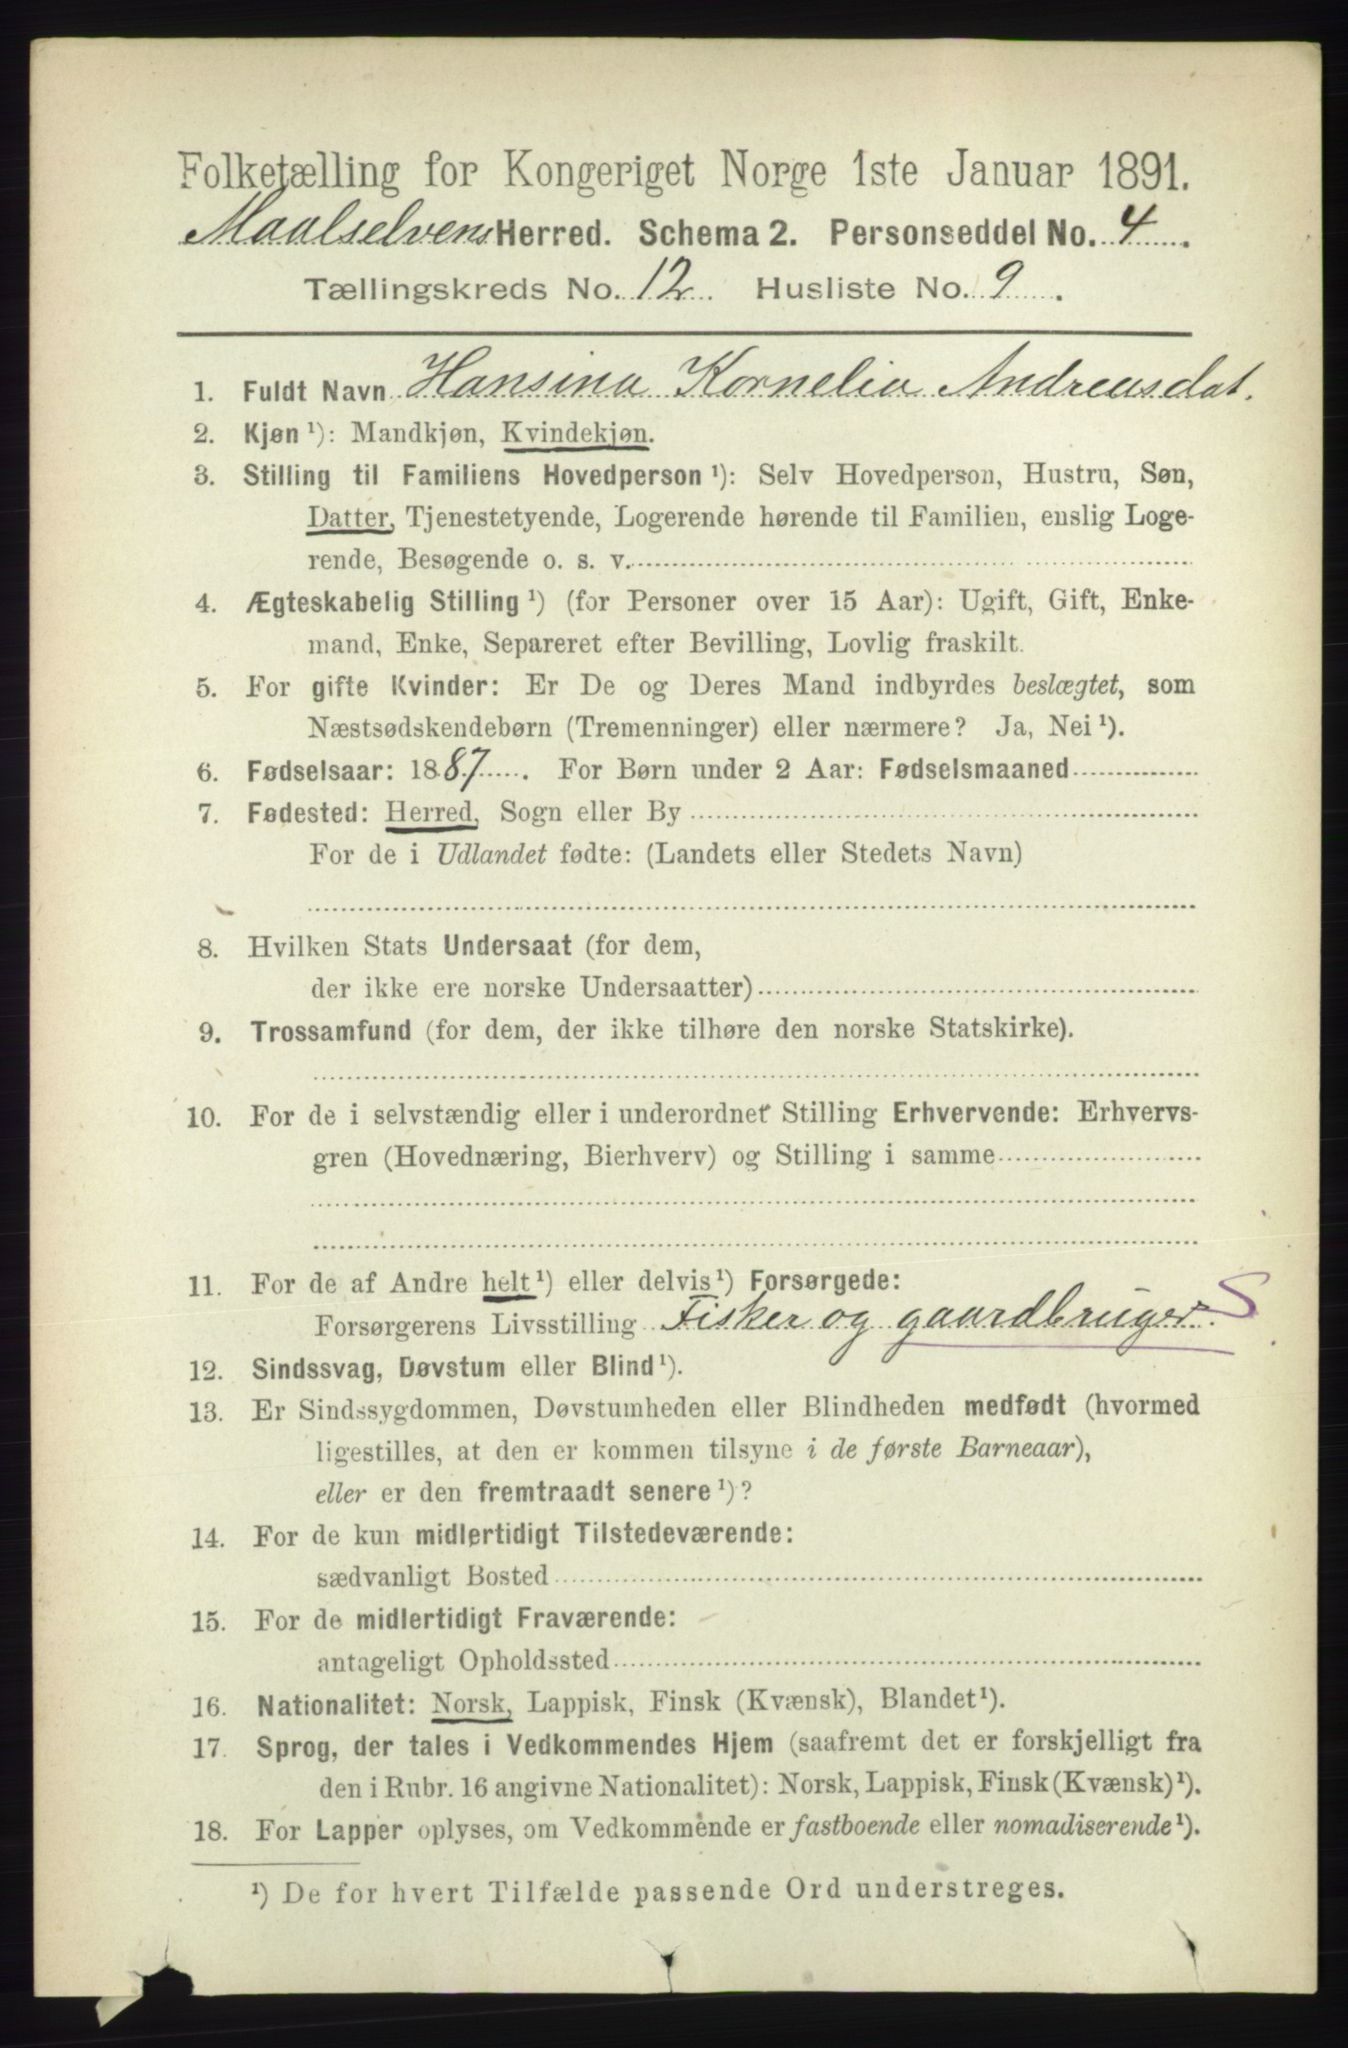 Folketælling for Kongeriget Norge 1ste Januar 1891.
Maalselvens Herred. Schema 2. Personseddel No. 4.
Tællingskreds No. 12. Husliste No. 9.
1. Fuldt Navn Hansina Kornelia Andreasdat.
2. Kjøn ¹): Mandkjøn, Kvindekjøn.
3. Stilling til Familiens Hovedperson ¹): Selv Hovedperson, Hustru, Søn,
Datter, Tjenestetyende, Logerende hørende til Familien, enslig Loge-
rende, Besøgende o. s. v.
4. Ægteskabelig Stilling ¹) (for Personer over 15 Aar): Ugift, Gift, Enke-
mand, Enke, Separeret efter Bevilling, Lovlig fraskilt.
5. For gifte Kvinder: Er De og Deres Mand indbyrdes beslægtet, som
Næstsødskendebørn (Tremenninger) eller nærmere? Ja, Nei ¹).
6. Fødselsaar: 1887. For Børn under 2 Aar: Fødselsmaaned
7. Fødested: Herred, Sogn eller By
For de i Udlandet fødte: (Landets eller Stedets Navn)
8. Hvilken Stats Undersaat (for dem,
der ikke ere norske Undersaatter)
9. Trossamfund (for dem, der ikke tilhøre den norske Statskirke).
10. For de i selvstændig eller i underordnet Stilling Erhvervende: Erhvervs-
gren (Hovednæring, Bierhverv) og Stilling i samme
11. For de af Andre helt ¹) eller delvis ¹) Forsørgede:
Forsørgerens Livsstilling Fisker og gaardbruger. S
12. Sindssvag, Døvstum eller Blind ¹).
13. Er Sindssygdommen, Døvstumheden eller Blindheden medfødt (hvormed
ligestilles, at den er kommen tilsyne i de første Barneaar),
eller er den fremtraadt senere ¹)?
14. For de kun midlertidigt Tilstedeværende:
sædvanligt Bosted
15. For de midlertidigt Fraværende:
antageligt Opholdssted
16. Nationalitet: Norsk, Lappisk, Finsk (Kvænsk), Blandet ¹).
17. Sprog, der tales i Vedkommendes Hjem (saafremt det er forskjelligt fra
den i Rubr. 16 angivne Nationalitet): Norsk, Lappisk, Finsk (Kvænsk) ¹).
18. For Lapper oplyses, om Vedkommende er fastboende eller nomadiserende ¹).
¹) De for hvert Tilfælde passende Ord understreges.